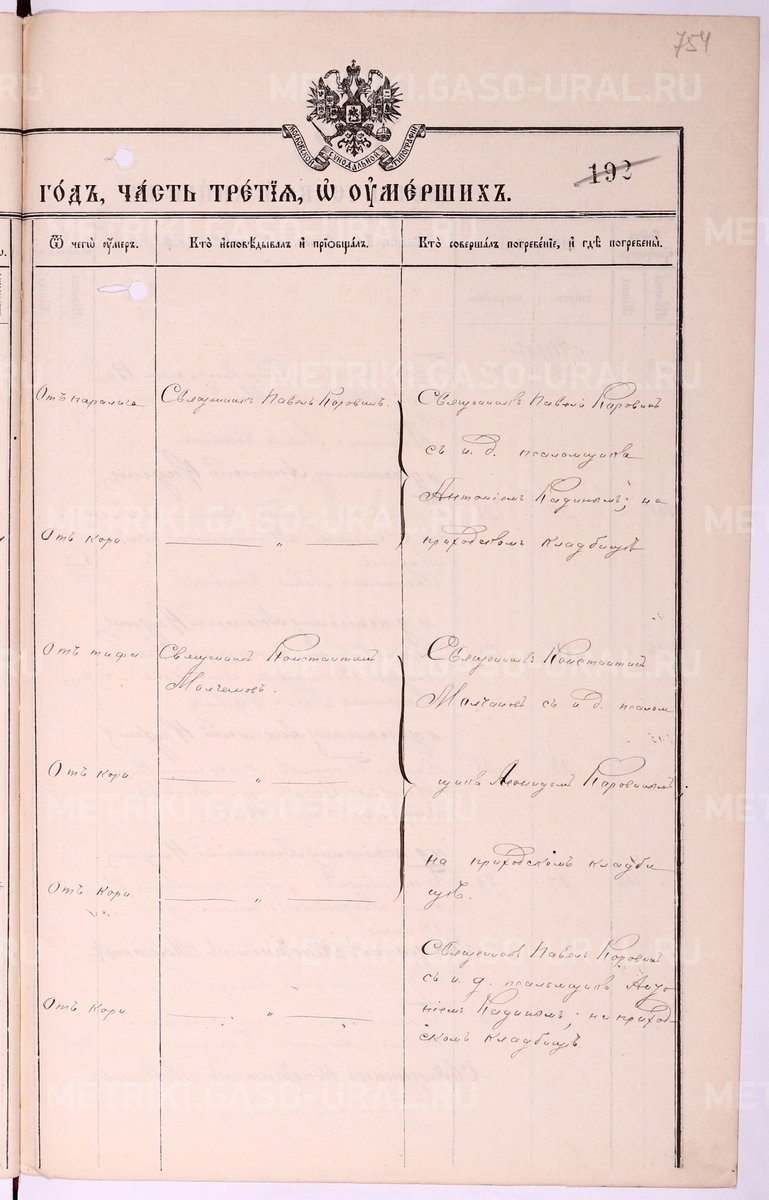 754
МОСКОВСКОЙ СѴНОДАЛЬНОЙ ТИПОГРАФІИ
192
ГО́ДЪ, ЧА́СТЬ ТРЕ́ТІЯ, Ѡ҆ ОУ҆МЕ́РШИХЪ.
Ѿ чегѡ̀ оу҆́меръ.
Кто̀ и҆сповѣ́дывалъ и҆ прїѡбща́лъ.
Кто̀ соверша́лъ погребе́нїе, и҆ гдѣ̀ погребены̀.
Отъ паралича
Священникъ Павелъ Коровинъ.
Священникъ Павелъ Коровинъ
съ и. д. псаломщика
Антоніемъ Кадинымъ; на
Отъ кори.
— „ —
приходскомъ кладбищѣ
Отъ тифа
Священникъ Константинъ
Молчановъ.
Священникъ Константинъ
Молчановъ съ и. д. псалом
Отъ кори
— „ —
щика Леонидомъ Коровинымъ;
на приходскомъ кладби
Отъ кори
— „ —
щѣ.
Священникъ Павелъ Коровинъ
съ и. д. псаломщика Анто
Отъ кори
— „ —
ніемъ Кадинымъ; на приход
скомъ кладбищѣ
METRIKI.GASO-URAL.RU